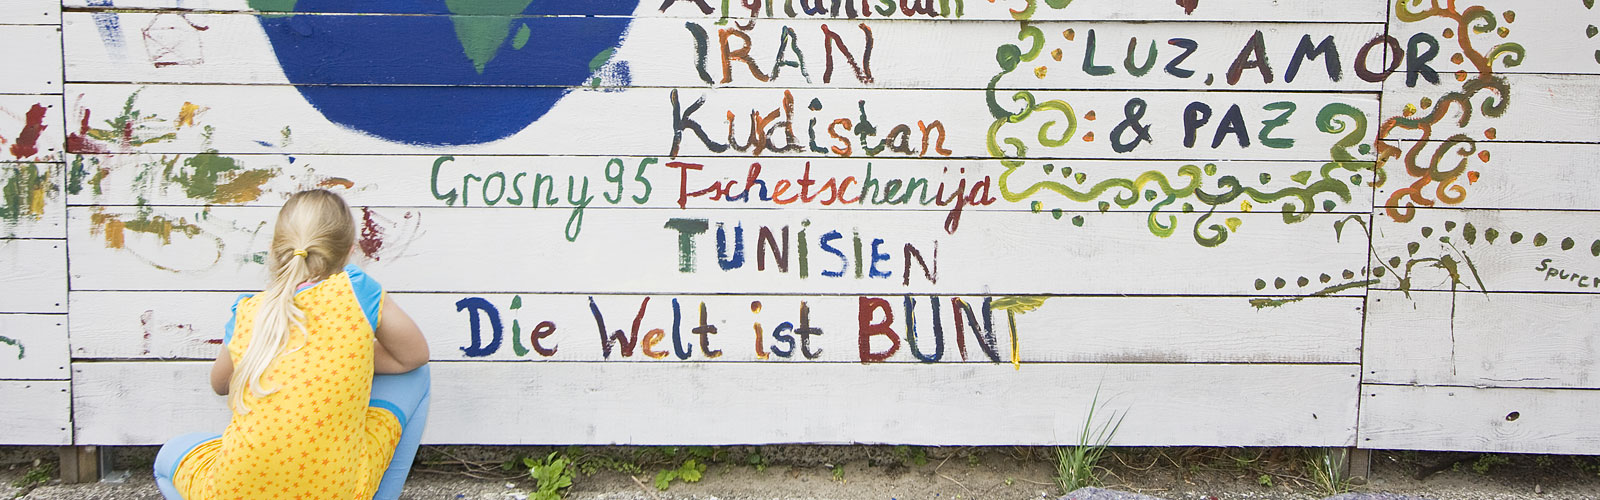 Afghanistan
IRAN
LUZ, AMOR
& PAZ
Kudistan
Grosny 95 Tschetschenija
TUNISIEN
Die Welt ist BUNT
Spuren